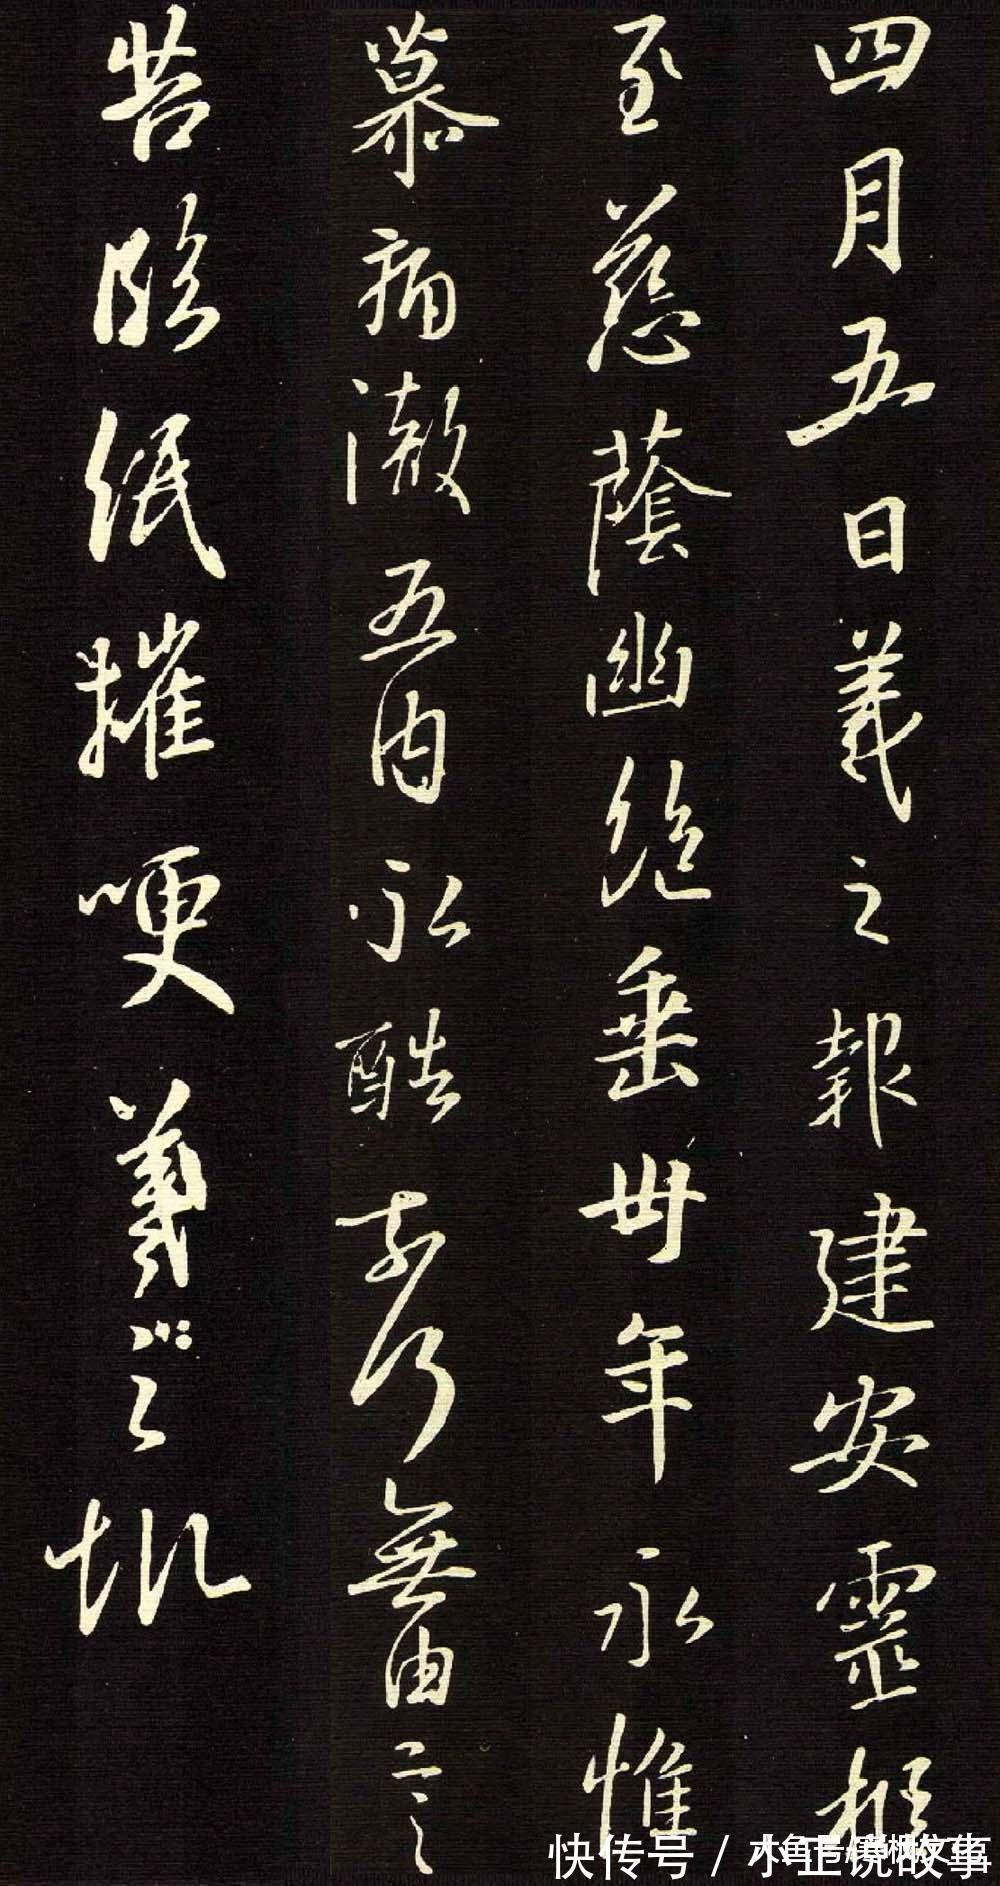 四月五日羲之報建安靈柩
至慈蔭幽絕垂卅年永惟
慕痛澈五內永酷奈何無由言
苦臨紙摧哽羲之
快传号 / 小正说故事